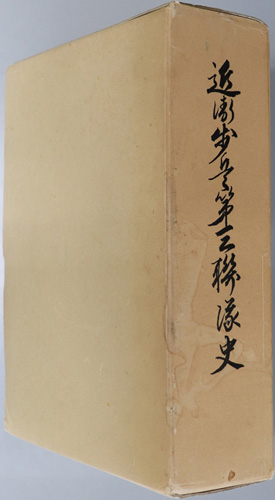 近衛歩兵第三聯隊史